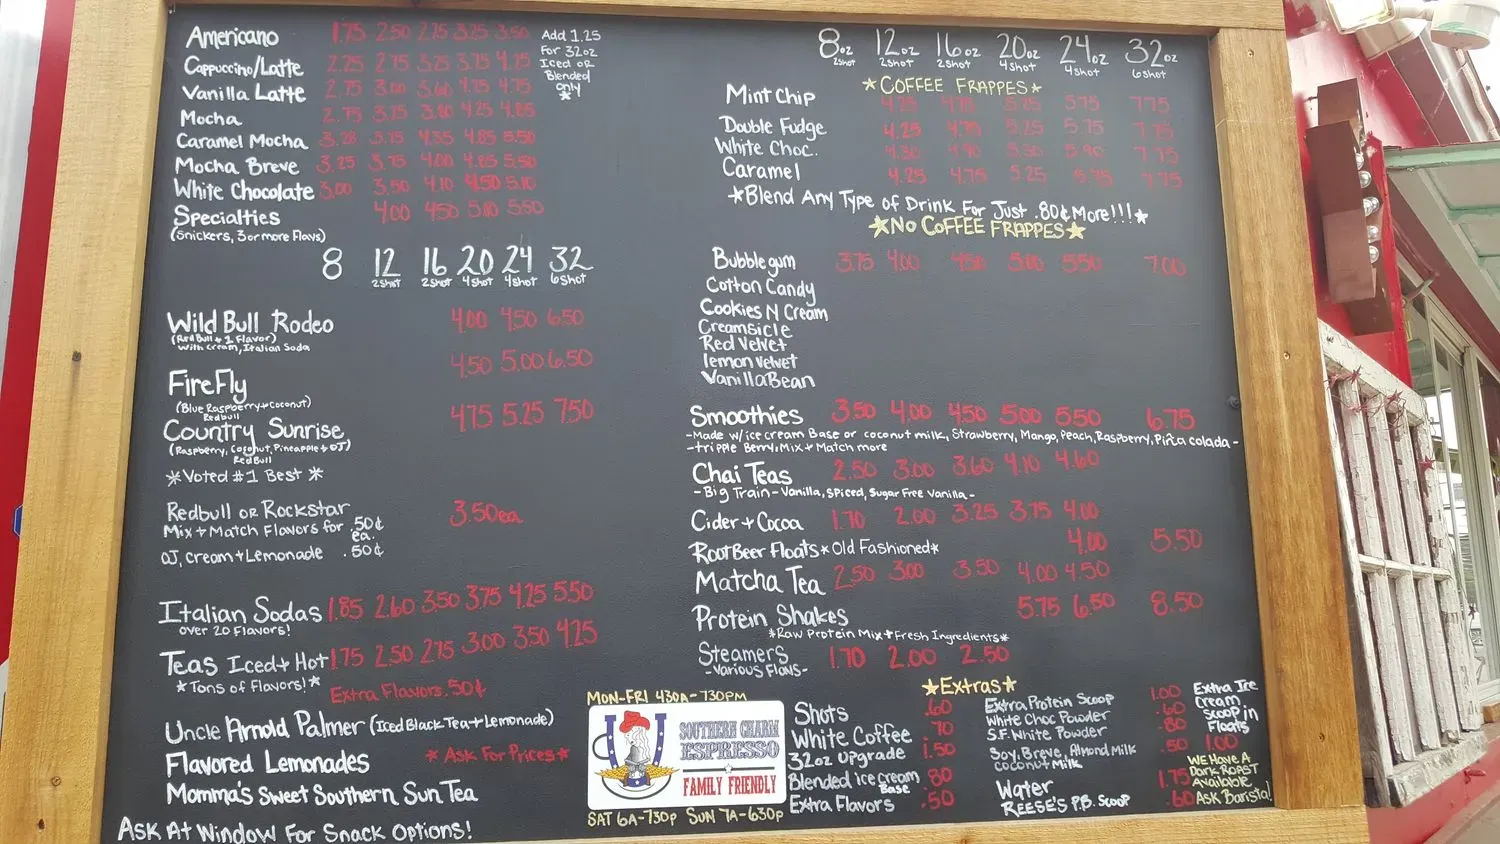 Americano 1.75 2.50 2.75 3.25 3.50
Cappuccino/Latte 2.25 2.75 3.25 3.75 4.25
Vanilla Latte 2.75 3.00 3.60 4.25 4.75
Mocha 2.75 3.25 3.80 4.25 4.85
Caramel Mocha 3.75 4.35 4.85 5.50
Mocha Breve 3.25 3.75 4.00 4.85 5.50
White Chocolate 3.00 3.50 4.10 4.50 5.10
Specialties 4.00 4.50 5.00 5.50
(Snickers, 3 or more Flavs)
Add 1.25
For 32oz
Iced or
Blended
only
*
8 12 16 20 24 32
2shot 2shot 4shot 4shot 6shot
Wild Bull Rodeo 4.00 4.50 6.50
(Red Bull + 1 Flavor)
with cream, Italian Soda
4.50 5.00 6.50
FireFly
(Blue Raspberry + Coconut)
Redbull
4.75 5.25 7.50
Country Sunrise
(Raspberry, Coconut, Pineapple + OJ)
Red Bull
*Voted #1 Best*
Redbull or Rockstar 3.50ea
Mix + Match Flavors for .50¢
ea.
OJ, cream + Lemonade .50¢
Italian Sodas 1.85 2.60 3.50 3.75 4.25 5.50
over 20 Flavors!
Teas Iced + Hot 1.75 2.50 2.75 3.00 3.50 4.25
*Tons of Flavors!*
Extra Flavors .50¢
Uncle Arnold Palmer (Iced Black Tea + Lemonade)
Flavored Lemonades *Ask For Prices*
Momma's Sweet Southern Sun Tea
Ask At Window For Snack Options!
8oz 12oz 16oz 20oz 24oz 32oz
2shot 2shot 2shot 4shot 4shot 6shot
*Coffee Frappes*
Mint Chip 4.25 4.75 5.25 5.75 7.75
Double Fudge 4.25 4.75 5.25 5.75 7.75
White Choc. 4.30 4.90 5.30 5.90 7.75
Caramel 4.25 4.75 5.25 5.75 7.75
*Blend Any Type of Drink For Just .80¢ More!!!*
*No Coffee Frappes*
Bubblegum 3.75 4.00 4.50 5.00 5.50 7.00
Cotton Candy
Cookies N Cream
Creamsicle
Red Velvet
lemon velvet
Vanilla Bean
Smoothies 3.50 4.00 4.50 5.00 5.50 6.75
-Made w/ice cream Base or coconut milk, Strawberry, Mango, Peach, Raspberry, Piña colada-
-tripple Berry, Mix + Match more
Chai Teas 2.50 3.00 3.60 4.10 4.60
-Big Train-Vanilla, Spiced, Sugar Free Vanilla-
Cider + Cocoa 1.70 2.00 3.25 3.75 4.00
Root Beer Floats *Old Fashioned* 4.00 5.50
Matcha Tea 2.50 3.00 3.50 4.00 4.50
Protein Shakes 5.75 6.50 8.50
*Raw Protein Mix + Fresh Ingredients*
Steamers 1.70 2.00 2.50
-Various Flavs-
MON-FRI 430A-730PM
SOUTHERN CHARM
ESPRESSO
FAMILY FRIENDLY
SAT 6A-730P SUN 7A-630P
*Extras*
Shots .60
White Coffee .70
32oz Upgrade 1.50
Blended ice cream Base .80
Extra Flavors .50
Extra Protein Scoop 1.00
White Choc Powder .60
S.F. White Powder .80
Soy, Breve, Almond Milk .50
coconut Milk
Water 1.75
REESE'S P.B. Scoop .60
Extra Ice
Cream
Scoop in
Floats
1.00
We Have A
Dark Roast
Available
Ask Barista!